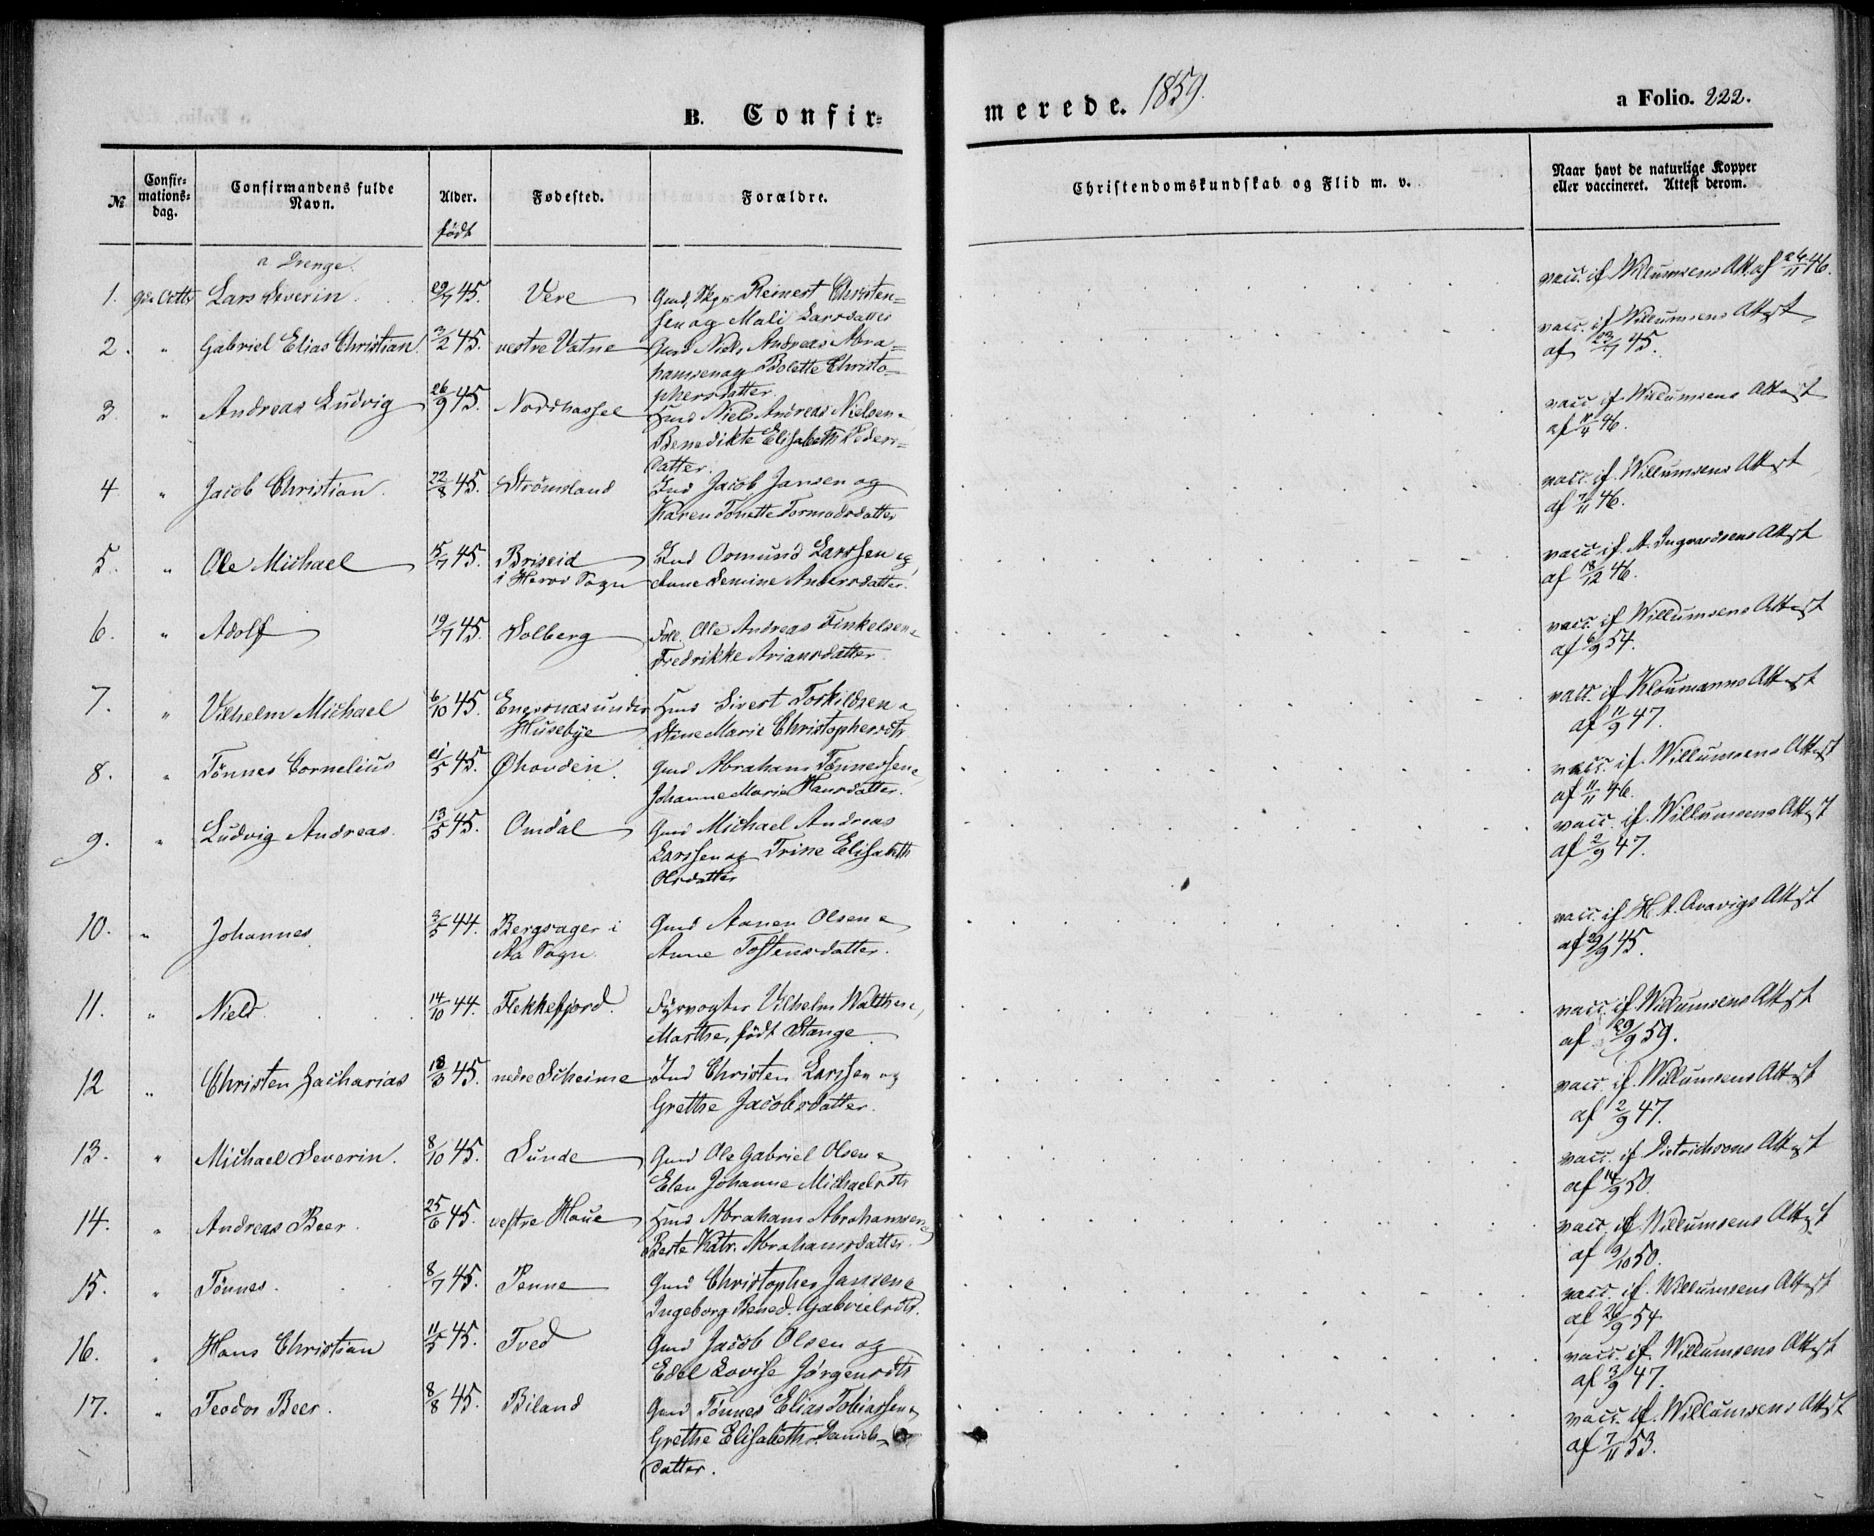 B. Confir-
merede. 1859.
a Folio. 222.
№
Confir-
mations-
dag.
Confirmandens fulde
Navn.
Alder.
født
Fødested.
Forældre.
Christendomskundskab og Flid m. v.
Naar havt de naturlige Kopper
eller vaccineret. Attest derom.
a Drenge.
1. 9de Octbr Lars Severin. 29/7 45. Vere Gmd, Reinert Christen-
sen og Mali Larsdatter
vacc. if Willumsens Att. af 26/11 46.
2. " Gabriel Elias Christian 3/2 45. vestre Vatne Gmd Niels Andreas Abra-
hamsen og Bolette Christo-
phersdatter
vacc. if Willumsens Attest
af 23/7 45.
3 " Andreas Ludvig 26/9 45. Nordhassel Hmd Niels Andreas Nielsen &
Benedikte Elisabeth Peders-
datter.
vacc. if Willumsens Attest
af 46.
4 " Jacob Christian. 22/8 45. Strømsland Ind Jacob Jansen og
Karen Tonette Tormodsdatter
vacc. if. Willumsens Attest
af 7/11 46.
5. " Ole Michael 15/7 45. Briseid
i Herred Sogn
Ind Osmund Larssen og
Anne Semine Andersdatter.
vacc. if. A. Ingvardsens Attest
af 18/12 46.
6. " Adolf 19/7 45. Solberg Ole Andreas Finkelsen &
Fredrikke Ariansdatter.
vacc. if Willumsens Attest
af 6/9 54.
7. " Vilhelm Michael 6/10 45. Enersnæs under
Husebye
Hmd Sivert Torkildsen &
Stine Marie Christophersdtr
vacc. if Kloumanns Attest
af 11/9 47.
8. " Tønnes Cornelius 21/5 45. Øhovden. Gmd Abraham Tønnessen &
Johanne Marie Hansdatter.
vacc. if. Willumsens Attest
af 11/11 46.
9. " Ludvig Andreas. 13/5 45. Omdal Gmd Michael Andreas
Larssen og Trine Elisabeth
Olsdatter
vacc. if. Willumsens Attest
af 2/9 47.
10. " Johannes 3/5 44. Bergsager i
Aa Sogn.
Gmd Aanen Olsen &
Anne Tostensdatter.
vacc. if H. A. Attest
af 29/9 45.
11. " Niels 14/10 44. Flekkefjord. Fyrvogter Vilhelm &
Marthe, født Stange
vacc. if Willumsens Attest
af 29/9 59.
12 " Christen Zacharias 18/3 45. nedre Scheime Ind Christen Larssen og
Grethe Jacobsdatter.
vacc. if. Willumsens Attest
af 2/9 47.
13. " Michael Severin. 8/10 45. Lunde Gmd Ole Gabriel Olsen &
Elen Johanne Michaelsdtr
vacc. if Dietrichsons Attest
af 14/9 50.
14. " Andreas Beer. 25/6 45. vestre Haue Hmd Abraham Abrahamsen &
Berte Katr. Abrahamsdatter.
vacc. if Willumsens Attest
af 9/10 50.
15. " Tønnes. 8/7 45. Penne Gmd Christopher Jansen &
Ingeborg Bened. Gabrielsdtr.
vacc. if. Willumsens Attest
af 26/9 54
16. " Hans Christian 11/5 45. Tved Gmd Jacob Olsen og
Edel Lovise Jørgensdtr
vacc. if. Willumsens Attest
af 3/9 47.
17. " Teodor Beer. 8/8 45. Biland Gmd Tønnes Elias Tobiassen &
Grethe Elisabeth Daniels-
datter.
vacc. if. Willumsens Attest
af 7/11 53.